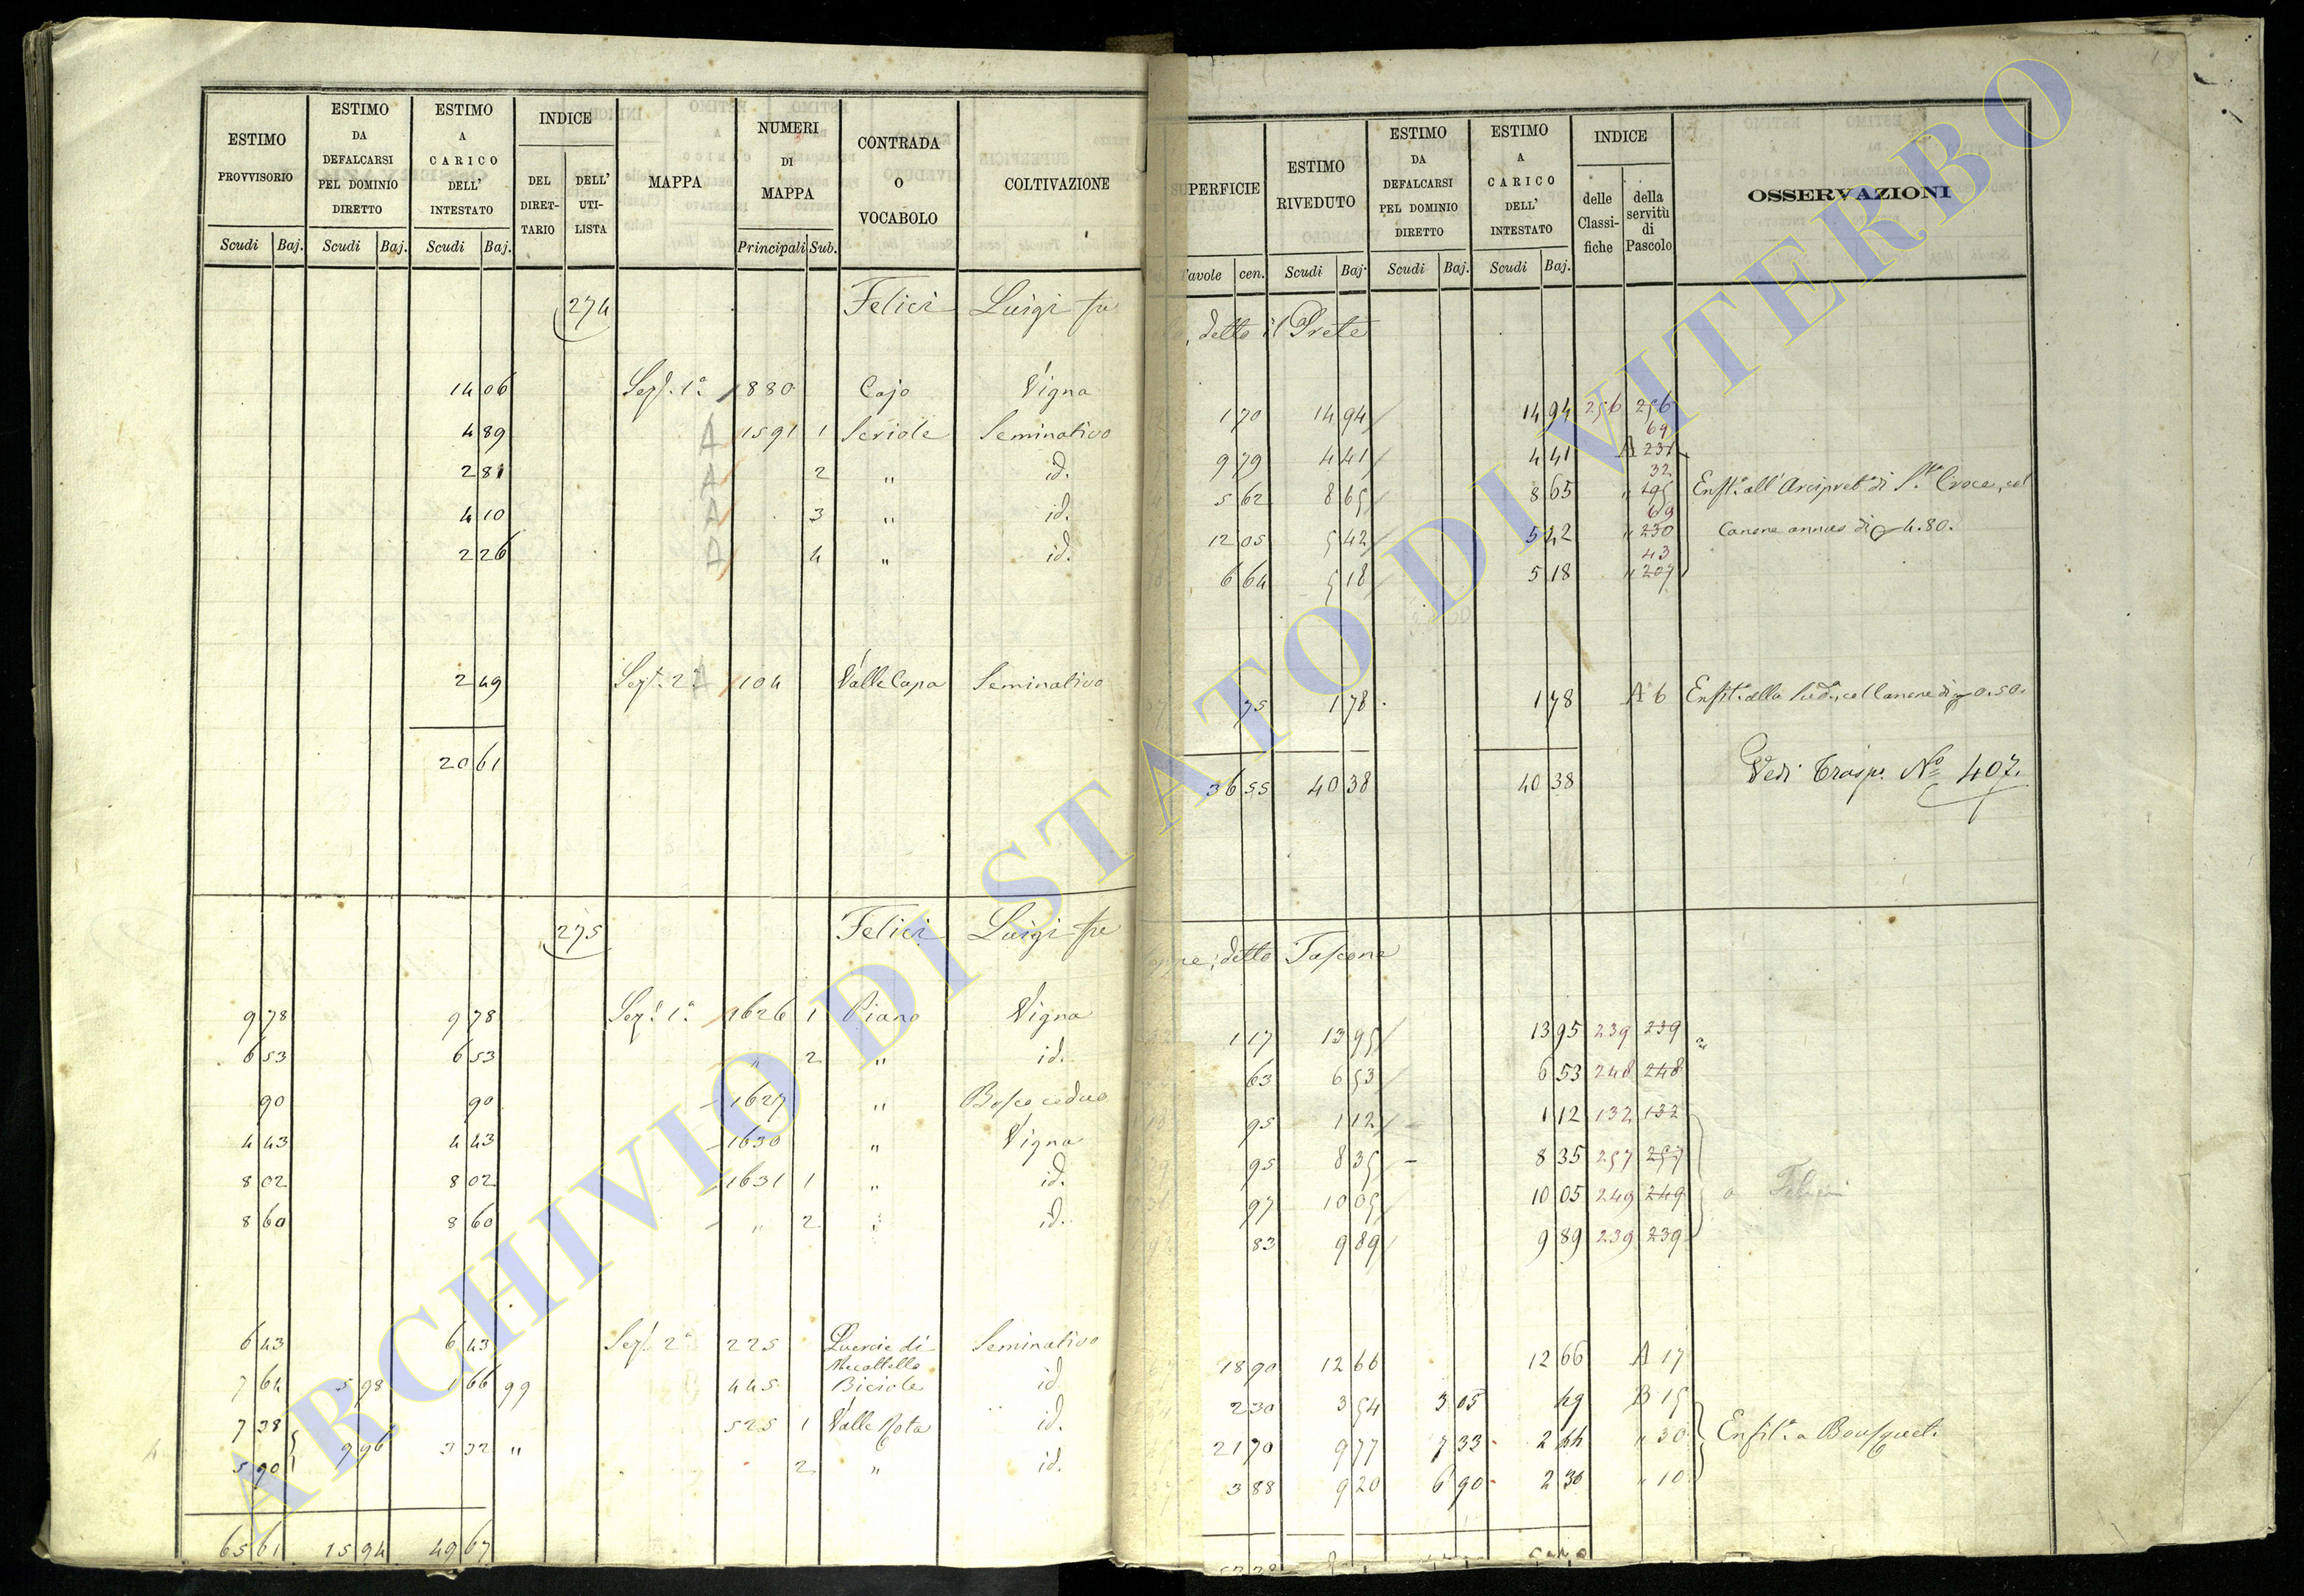 ESTIMO PROVVISORIO
ESTIMO DA DEFALCARSI PEL DOMINIO DIRETTO
ESTIMO A CARICO DELL' INTESTATO
INDICE
DEL DIRETTARIO
DELL' UTILISTA
MAPPA
NUMERI DI MAPPA
CONTRADA O VOCABOLO
COLTIVAZIONE
Scudi Baj. Scudi Baj. Scudi Baj. Principali Sub.
274 Felici Luigi fu
14 06 Sez.e 1a 880 Cajo Vigna
4 89 A 1591 1 Seriole Seminativo
2 81 A 2 " id.
4 10 A 3 " id.
2 26 A 4 " id.
2 49 Sez.e 2a A 104 Valle Capa Seminativo
20 61
275 Felici Luigi fu
9 78 9 78 Sez.e 1a 1626 1 Piano Vigna
6 53 6 53 " 2 " id.
90 90 1627 " Bosco ceduo
4 43 4 43 1630 " Vigna
8 02 8 02 1631 1 " id.
8 60 8 60 " 2 " id.
6 43 6 43 Sez.e 2a 225 Quercie di Seminativo
7 64 5 98 1 66 99 445 Biciole id.
7 38 525 1 Valle Rota id.
9 96 3 32 "
5 90 2 " id.
65 61 15 94 49 67
SUPERFICIE
ESTIMO RIVEDUTO
ESTIMO DA DEFALCARSI PEL DOMINIO DIRETTO
ESTIMO A CARICO DELL' INTESTATO
INDICE
delle Classifiche
della servitù di Pascolo
OSSERVAZIONI
Tavole cen. Scudi Baj. Scudi Baj. Scudi Baj.
, detto il Prete
1 70 14 94 14 94 256 256
69
9 79 4 41 4 41 A 231
32
5 62 8 65 8 65 " 195 Enfit.a all' Arcipret.a di S.ta Croce, col
69
12 05 5 42 5 42 " 230 Canone annuo di 4.80.
43
6 64 5 18 5 18 " 207
75 1 78 1 78 A 6 Enfit.a alla Sud.a, col Canone di 0.50.
36 55 40 38 40 38
Vedi Trasp. No 407.
detto Tascone
1 17 13 95 13 95 239 239
63 6 53 6 53 248 248
95 1 12 1 12 132 132
95 8 35 8 35 257 257
97 10 05 10 05 249 249
83 9 89 9 89 239 239
18 90 12 66 12 66 A 17
2 30 3 54 3 05 49 B 15
21 70 9 77 7 33 2 44 " 30 Enfit.a a Bousquet.
3 88 9 20 6 90 2 30 " 10
ARCHIVIO DI STATO DI VITERBO